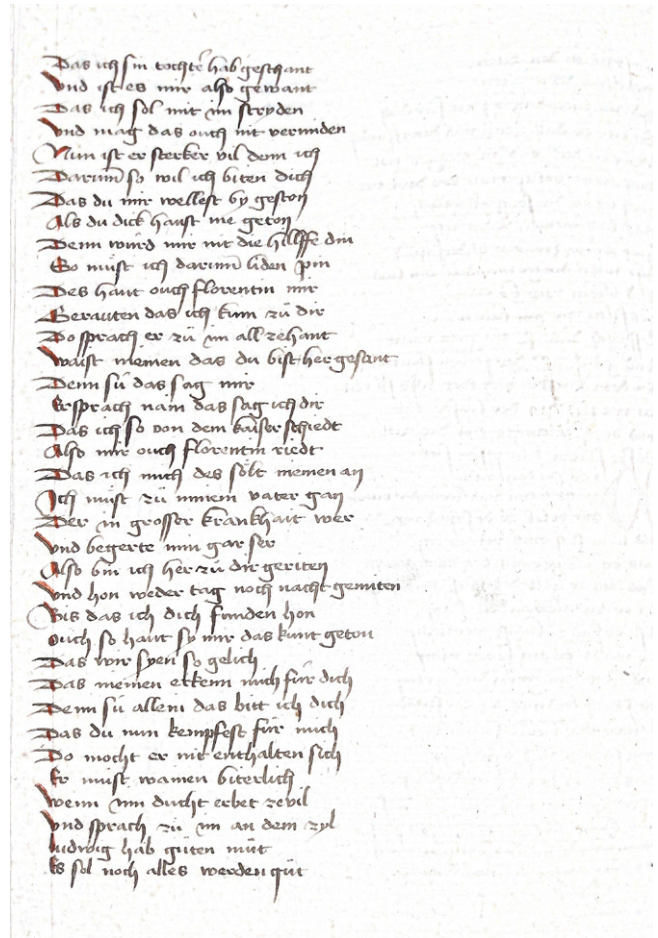 Das ich sin tochter hab geschant
Vnd ist es mir also gewant
Das ich sol mit im stryden
Vnd mag das ouch nit vermiden
Nun ist er sterker vil denn ich
Darum̄ so wil ich biten dich
Das du mir wellest by geston
Als du dick haust me geton
Denn wurd mir nit die hillffe din
So müst ich darum̄ liden pin
Des haut ouch florentin mir
Gerauten das ich kum zü dir
Do sprach er zü im all zehant
Waist niemen das du bist her gesant
Denn sü das sag mir
Er sprach nain das sag ich dir
Das ich so von dem kaiser schiedt
Also mir ouch florentin riedt
Das ich mich des sölt niemen an
Ich müst zü minem vater gan
Der in grosser krankhait wer
Vnd begerte min gar ser
Also bin ich her zü dir geriten
Vnd hon weder tag noch nacht gemiten
Bis das ich dich funden hon
Ouch so haut sy mir das kunt geton
Das wir syen so gelich
Das niemen erkenn mich für dich
Denn sü allein das bitt ich dich
Das du nun kempfest für mich
Do mocht er nit enthalten sich
Er müst wainen biterlich
Wenn im ducht erbet ze vil
Vnd sprach zü im an dem zyl
Ludwig hab güten müt
Es sol noch alles werden güt